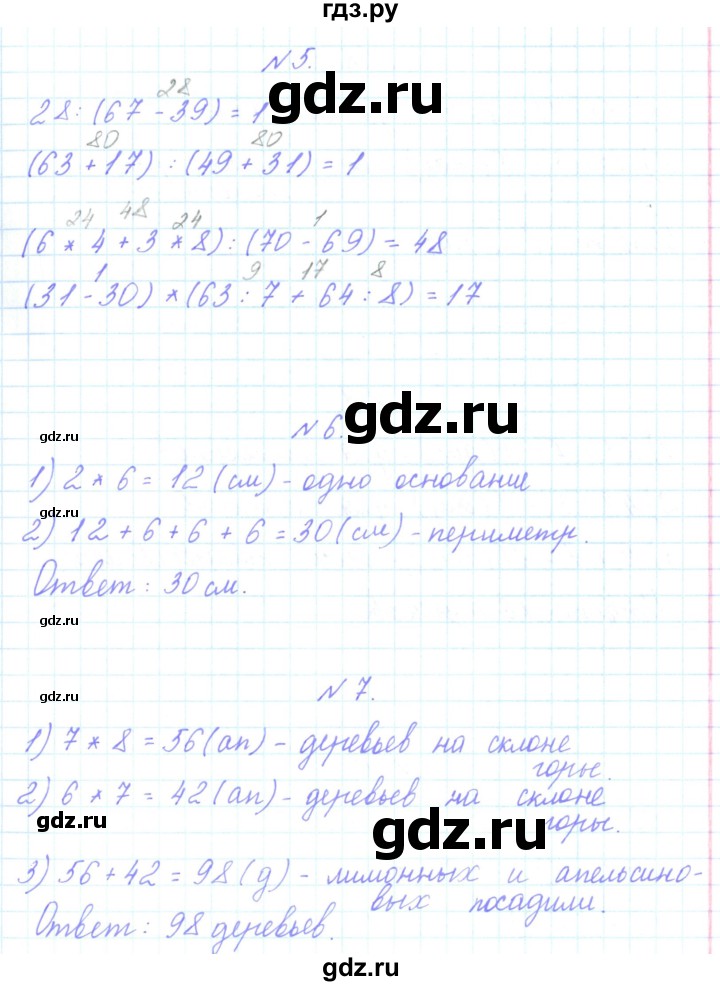 гдз.ру
№5.
28
28 : (67 - 39) = 1
gdz.ru
80 80
(63 + 17) : (49 + 31) = 1
24 48 24 1
(6 * 4 + 3 * 8) : (70 - 69) = 48
1 9 17 8
(31 - 30) * (63 : 7 + 64 : 8) = 17
gdz.ru
№6.
gdz.ru
1) 2 * 6 = 12 (см) - одно основание
gdz.ru
2) 12 + 6 + 6 + 6 = 30 (см) - периметр.
Ответ: 30 см.
gdz.ru
№7.
gdz.ru
1) 7 * 8 = 56 (ап) - деревьев на склоне
горы.
2) 6 * 7 = 42 (ап) - деревьев на склоне
горы.
gdz.ru
gdz.ru
3) 56 + 42 = 98 (д) - лимонных и апельсино-
вых посадили.
Ответ: 98 деревьев.
gdz.ru